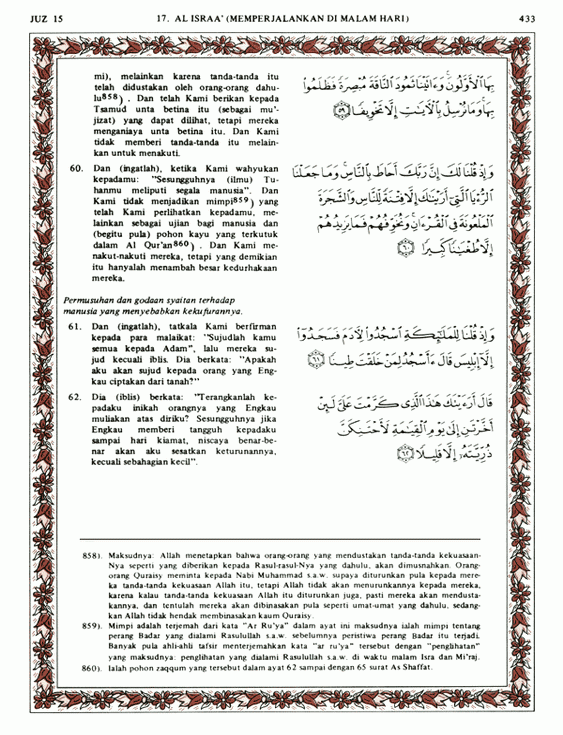 JUZ 15
17. AL ISRAA' (MEMPERJALANKAN DI MALAM HARI)
433
mi), melainkan karena tanda-tanda itu
telah didustakan oleh orang-orang dahu-
lu858) . Dan telah Kami berikan kepada
Tsamud unta betina itu (sebagai mu'-
jizat) yang dapat dilihat, tetapi mereka
menganiaya unta betina itu. Dan Kami
tidak memberi tanda-tanda itu melain-
kan untuk menakuti.
بِهَا ٱلْأَوَّلُونَ وَءَاتَيْنَا ثَمُودَ ٱلنَّاقَةَ مُبْصِرَةً فَظَلَمُوا۟
بِهَا وَمَا نُرْسِلُ بِٱلْءَايَٰتِ إِلَّا تَخْوِيفًا ٥٩
60. Dan (ingatlah), ketika Kami wahyukan
kepadamu: "Sesungguhnya (ilmu) Tu-
hanmu meliputi segala manusia". Dan
Kami tidak menjadikan mimpi859) yang
telah Kami perlihatkan kepadamu, me-
lainkan sebagai ujian bagi manusia dan
(begitu pula) pohon kayu yang terkutuk
dalam Al Qur'an860) . Dan Kami me-
nakut-nakuti mereka, tetapi yang demikian
itu hanyalah menambah besar kedurhakaan
mereka.
وَإِذْ قُلْنَا لَكَ إِنَّ رَبَّكَ أَحَاطَ بِٱلنَّاسِ وَمَا جَعَلْنَا
ٱلرُّءْيَا ٱلَّتِىٓ أَرَيْنَٰكَ إِلَّا فِتْنَةً لِّلنَّاسِ وَٱلشَّجَرَةَ
ٱلْمَلْعُونَةَ فِى ٱلْقُرْءَانِ وَنُخَوِّفُهُمْ فَمَا يَزِيدُهُمْ
إِلَّا طُغْيَٰنًا كَبِيرًا ٦٠
Permusuhan dan godaan syaitan terhadap
manusia yang menyebabkan kekufurannya.
61. Dan (ingatlah), tatkala Kami berfirman
kepada para malaikat: "Sujudlah kamu
semua kepada Adam", lalu mereka su-
jud kecuali iblis. Dia berkata: "Apakah
aku akan sujud kepada orang yang Eng-
kau ciptakan dari tanah?"
وَإِذْ قُلْنَا لِلْمَلَٰٓئِكَةِ ٱسْجُدُوا۟ لِءَادَمَ فَسَجَدُوٓا۟
إِلَّآ إِبْلِيسَ قَالَ ءَأَسْجُدُ لِمَنْ خَلَقْتَ طِينًا ٦١
62. Dia (iblis) berkata: "Terangkanlah ke-
padaku inikah orangnya yang Engkau
muliakan atas diriku? Sesungguhnya jika
Engkau memberi tangguh kepadaku
sampai hari kiamat, niscaya benar-be-
nar akan aku sesatkan keturunannya,
kecuali sebahagian kecil".
قَالَ أَرَءَيْتَكَ هَٰذَا ٱلَّذِى كَرَّمْتَ عَلَىَّ لَئِنْ
أَخَّرْتَنِ إِلَىٰ يَوْمِ ٱلْقِيَٰمَةِ لَأَحْتَنِكَنَّ
ذُرِّيَّتَهُۥٓ إِلَّا قَلِيلًا ٦٢
858). Maksudnya: Allah menetapkan bahwa orang-orang yang mendustakan tanda-tanda kekuasaan-
Nya seperti yang diberikan kepada Rasul-rasul-Nya yang dahulu, akan dimusnahkan. Orang-
orang Quraisy meminta kepada Nabi Muhammad s.a.w. supaya diturunkan pula kepada mere-
ka tanda-tanda kekuasaan Allah itu, tetapi Allah tidak akan menurunkannya kepada mereka,
karena kalau tanda-tanda kekuasaan Allah itu diturunkan juga, pasti mereka akan mendusta-
kannya, dan tentulah mereka akan dibinasakan pula seperti umat-umat yang dahulu, sedang-
kan Allah tidak hendak membinasakan kaum Quraisy.
859). Mimpi adalah terjemah dari kata "Ar Ru'ya" dalam ayat ini maksudnya ialah mimpi tentang
perang Badar yang dialami Rasulullah s.a.w. sebelumnya peristiwa perang Badar itu terjadi.
Banyak pula ahli-ahli tafsir menterjemahkan kata "ar ru'ya" tersebut dengan "penglihatan"
yang maksudnya: penglihatan yang dialami Rasulullah s.a.w. di waktu malam Isra dan Mi'raj.
860). Ialah pohon zaqqum yang tersebut dalam ayat 62 sampai dengan 65 surat As Shaffat.